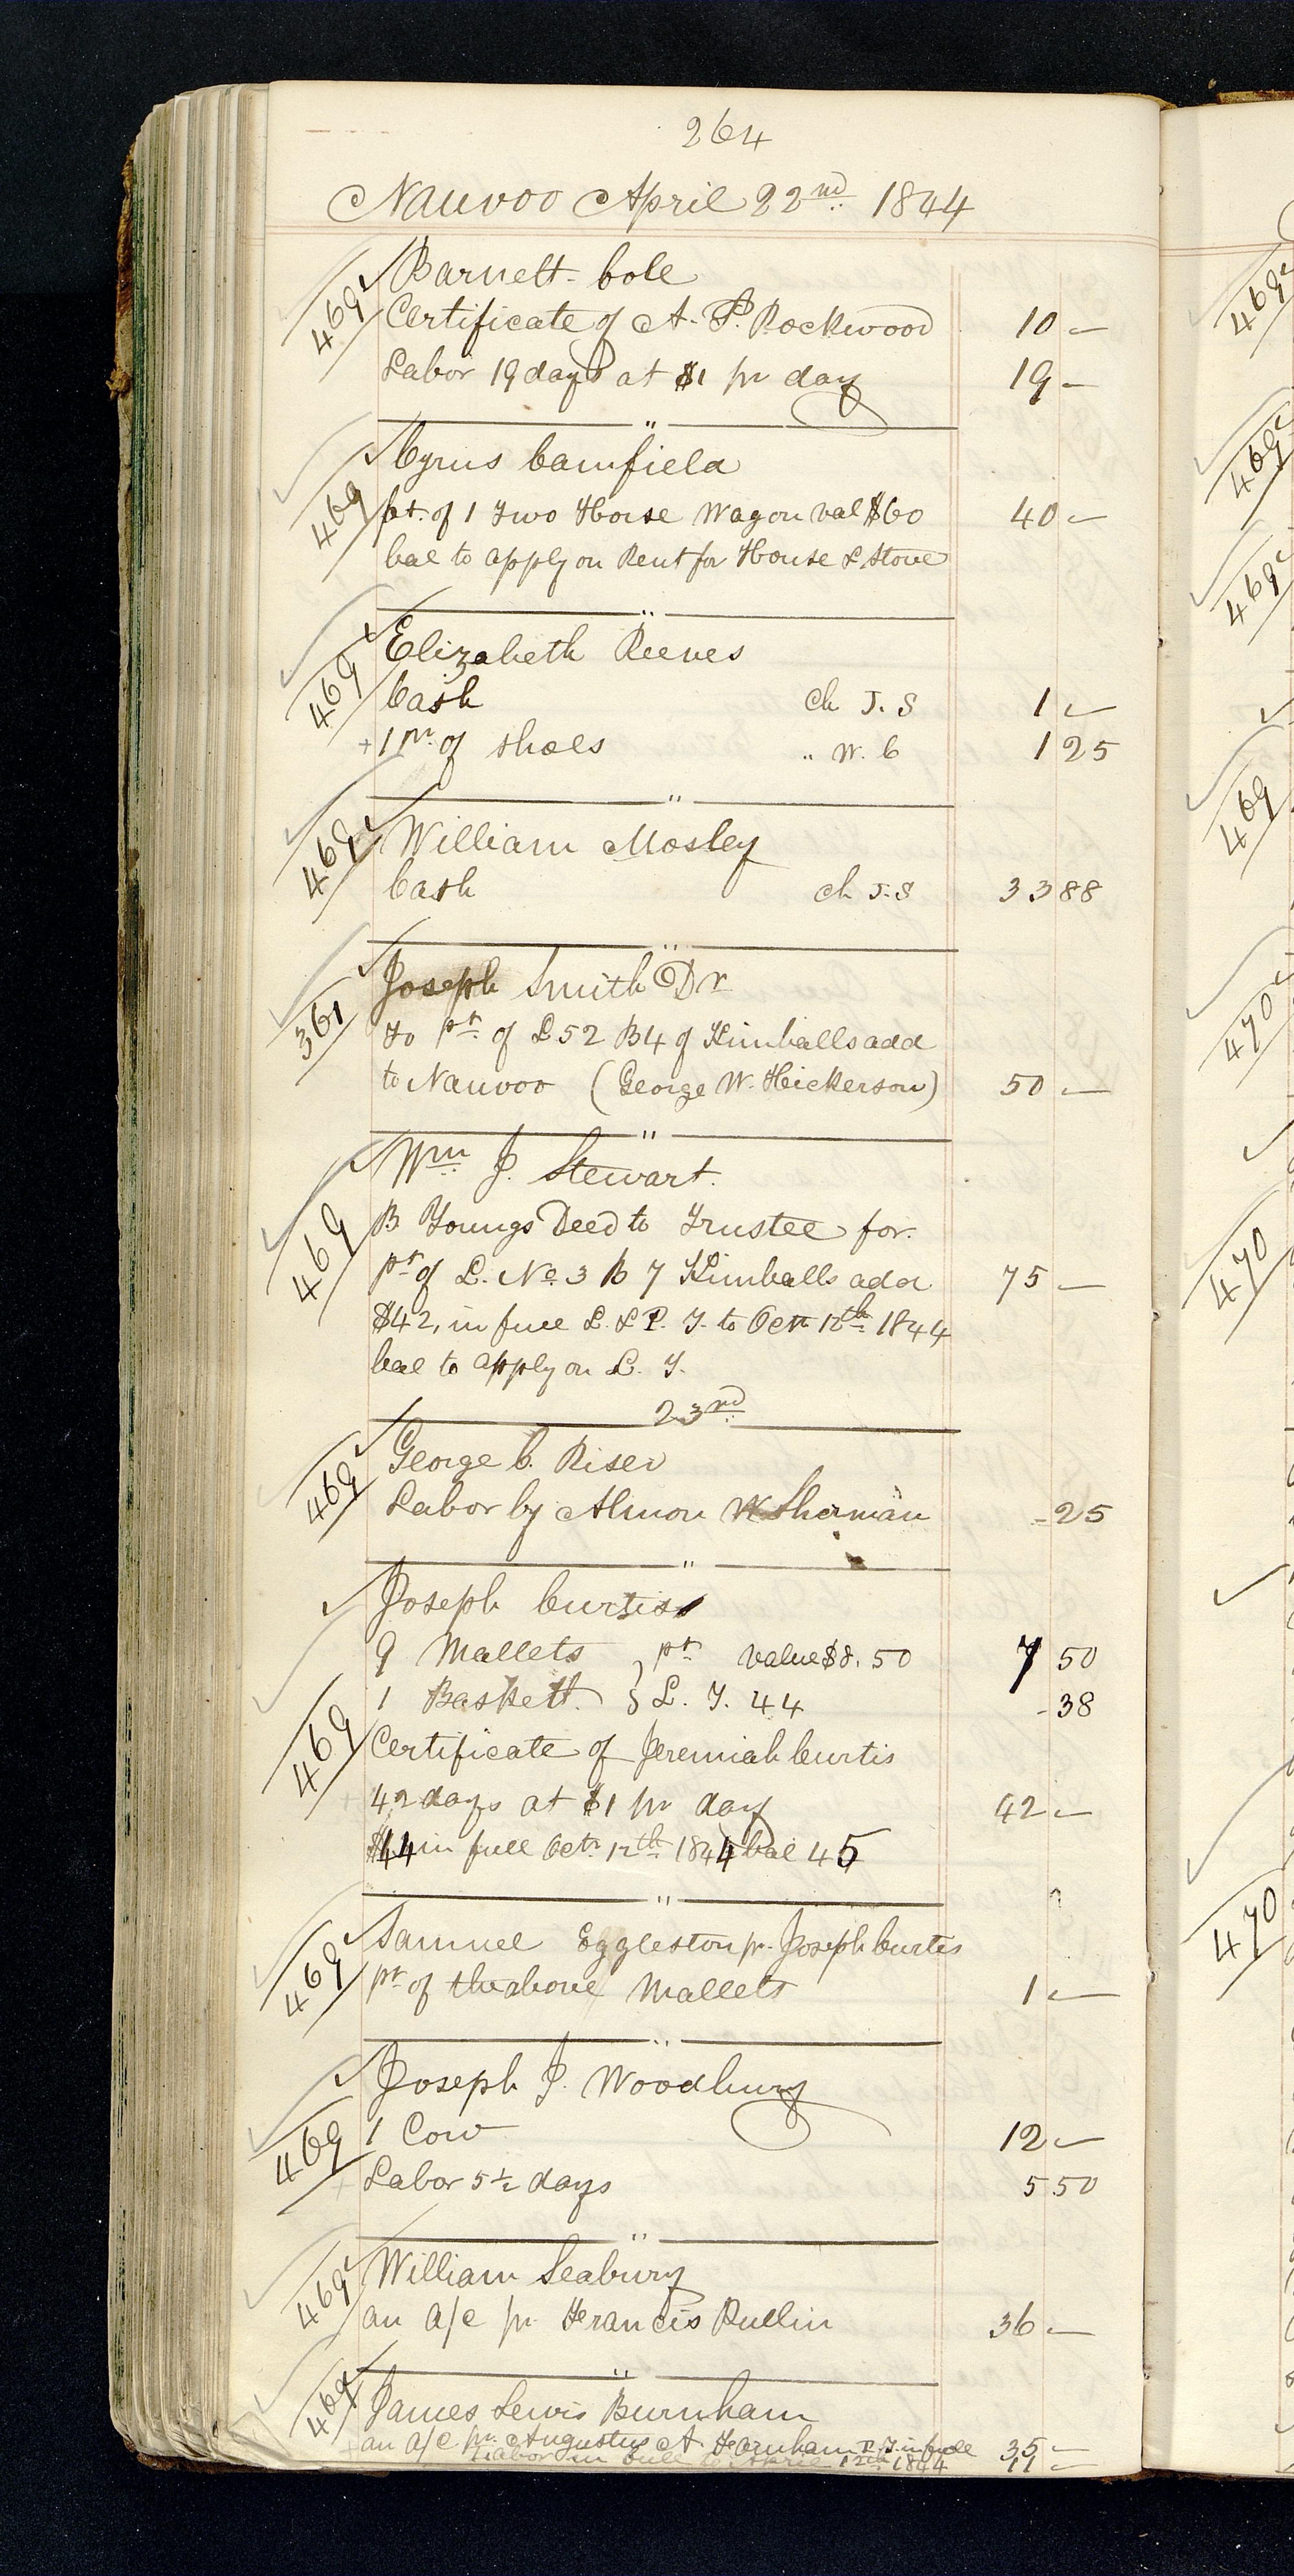 264
Nauvoo April 22nd 1844
469 Barnett Cole
Certificate of A. P. Rockwood 10 —
Labor 19 days at $1 pr day 19 —
"
469 Cyrus Camfield
pt. of 1 Two Horse Wagon val $60 40 —
bal to apply on Rent for House & Stove
"
469 Elizabeth Reeves
Cash ch J. S 1 —
+ 1 pr of shoes " W. C 1 25
"
469 William Mosley
Cash ch J. S 33 88
"
361 Joseph Smith Dr
to pt of L 52 B 4 of Kimballs add
to Nauvoo (George W. Hickerson) 50 —
"
469 Wm J. Stewart.
B Youngs Deed to Trustee for
pt of L. No. 3 B 7 Kimballs add 75 —
$42, in full L. & P. T. to Oct 12th 1844
bal to apply on L. T.
23rd
469 George C. Riser
Labor by Almon W Sherman - 25
"
Joseph Curtiss
9 Mallets } pt value $8.50 7 50
1 Baskett } L. T. 44 - 38
469 Certificate of Jeremiah Curtis
42 days at $1 pr day 42 —
$44 in full Oct. 12th 1844 bal 45
"
469 Samuel Eggleston pr. Joseph Curtis
pt of the above Mallets 1 —
"
Joseph J. Woodbury
469 1 Cow 12 —
+ Labor 5½ days 5 50
"
469 William Seabury
an a/c pr Francis Pullin 36 —
"
469 James Lewis Burnham
an a/c pr Augustus A Farnham P. T. in full 35 —
Labor in full to April 12th 1844 11 —
469
469
469
469
470
470
470